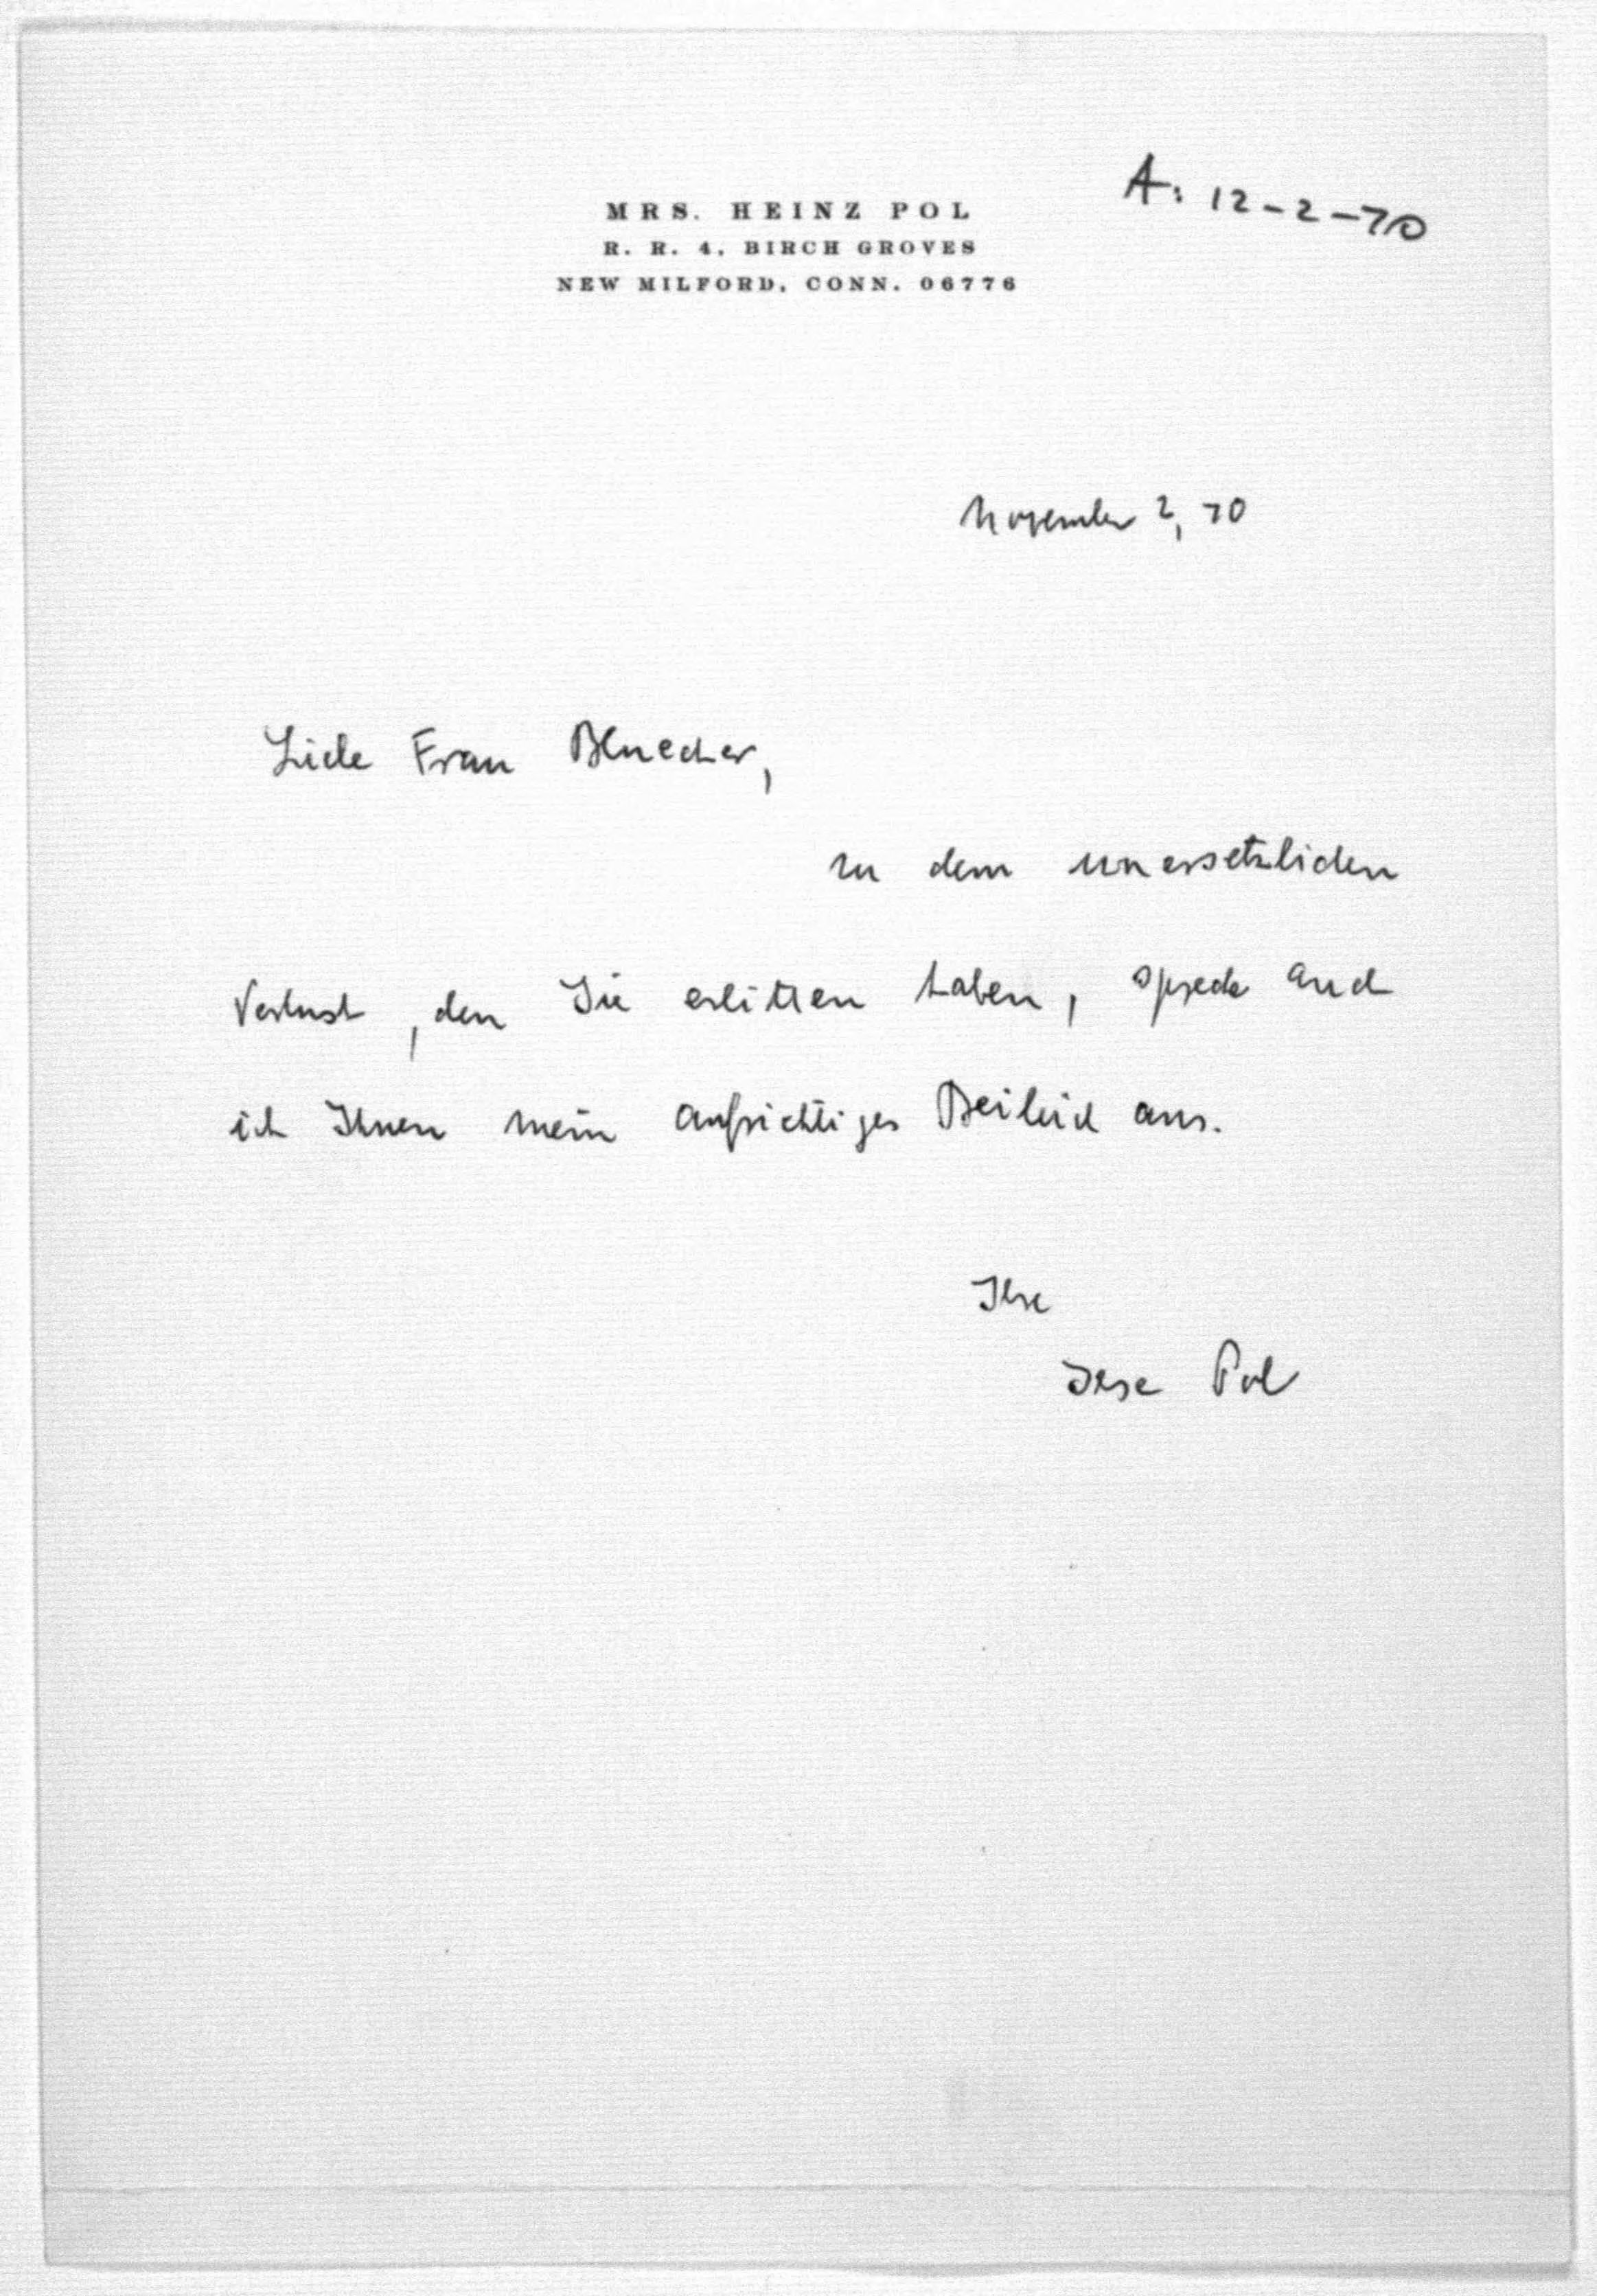 A: 12-2-70
MRS. HEINZ POL
R. R. 4, BIRCH GROVES
NEW MILFORD, CONN. 06776
November 2, 70
Liebe Frau Bluecher,
zu dem unersetzlichen
Verlust, den Sie erlitten haben, spreche auch
ich Ihnen mein aufrichtiges Beileid aus.
Ihre
Ilse Pol